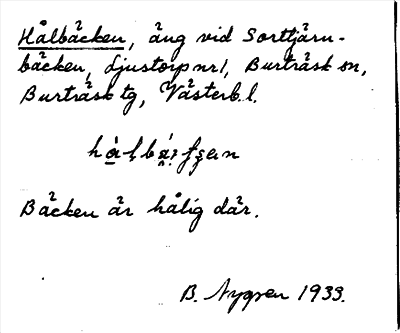 Hålbäcken, äng vid Sorttjärn-
bäcken, Ljustorp nr 1, Burträsk sn,
Burträsk tg, Västerb. l.
Bäcken är hålig där.
B. Nygren 1933.